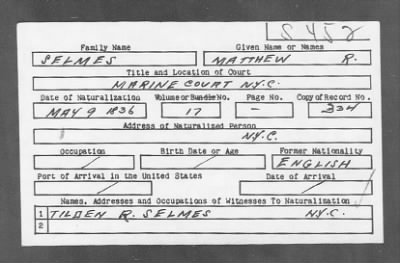 S 452
Family Name Given Name or Names
SELMES MATTHEW R.
Title and Location of Court
MARINE COURT N.Y.C.
Date of Naturalization Volume or Bundle No. Page No. Copy of Record No.
MAY 9 1836 17 - 334
Address of Naturalized Person
N.Y.C.
Occupation Birth Date or Age Former Nationality
/ / ENGLISH
Port of Arrival in the United States Date of Arrival
/ /
Names, Addresses and Occupations of Witnesses To Naturalization
1 TILDEN R. SELMES N.Y.C.
2